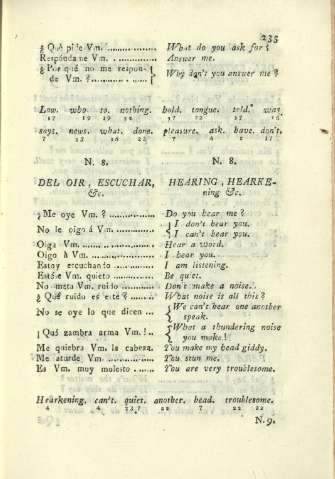 235
¿ Qué pide Vm. ................ What do you ask for?
Respóndame Vm. ............ Answer me.
¿ Por qué no me respon- } Why don't you answer me?
de Vm. ? ..................
Low. who. to. nothing. hold. tongue. told. was
17 19 19 16 17 12 17 16
says. news. what. done. pleasure. ask. have. don't.
7 18
N. 8. N. 8.
DEL OIR, ESCUCHAR, HEARING, HEARKE-
&c. ning &c.
¿ Me oye Vm. ? ................ Do you hear me?
No le oigo á Vm. ............ { I don't hear you.
I can't hear you.
Oiga Vm. ..................... Hear a word.
Oigo á Vm. ................... I hear you.
Estoy escuchando ............ I am listening.
Estése Vm. quieto ............ Be quiet.
No meta Vm. ruido ............ Don't make a noise.
¿ Qué ruido es este ? ......... What noise is all this?
No se oye lo que dicen ... { We can't hear one another
speak.
¡ Qué zambra arma Vm. !.. { What a thundering noise
you make!
Me quiebra Vm. la cabeza. You make my head giddy.
Me aturde Vm. ............... You stun me.
Es Vm. muy molesto ...... You are very troublesome.
Hearkening. can't. quiet. another. head. troublesome.
4 4 23,7 22 7 22 22
N. 9.